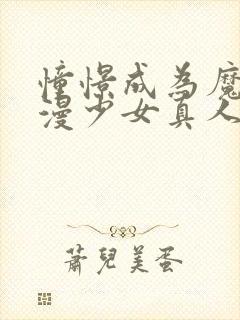 憧憬成為魔
漫少女真人
蕭兒美蛋